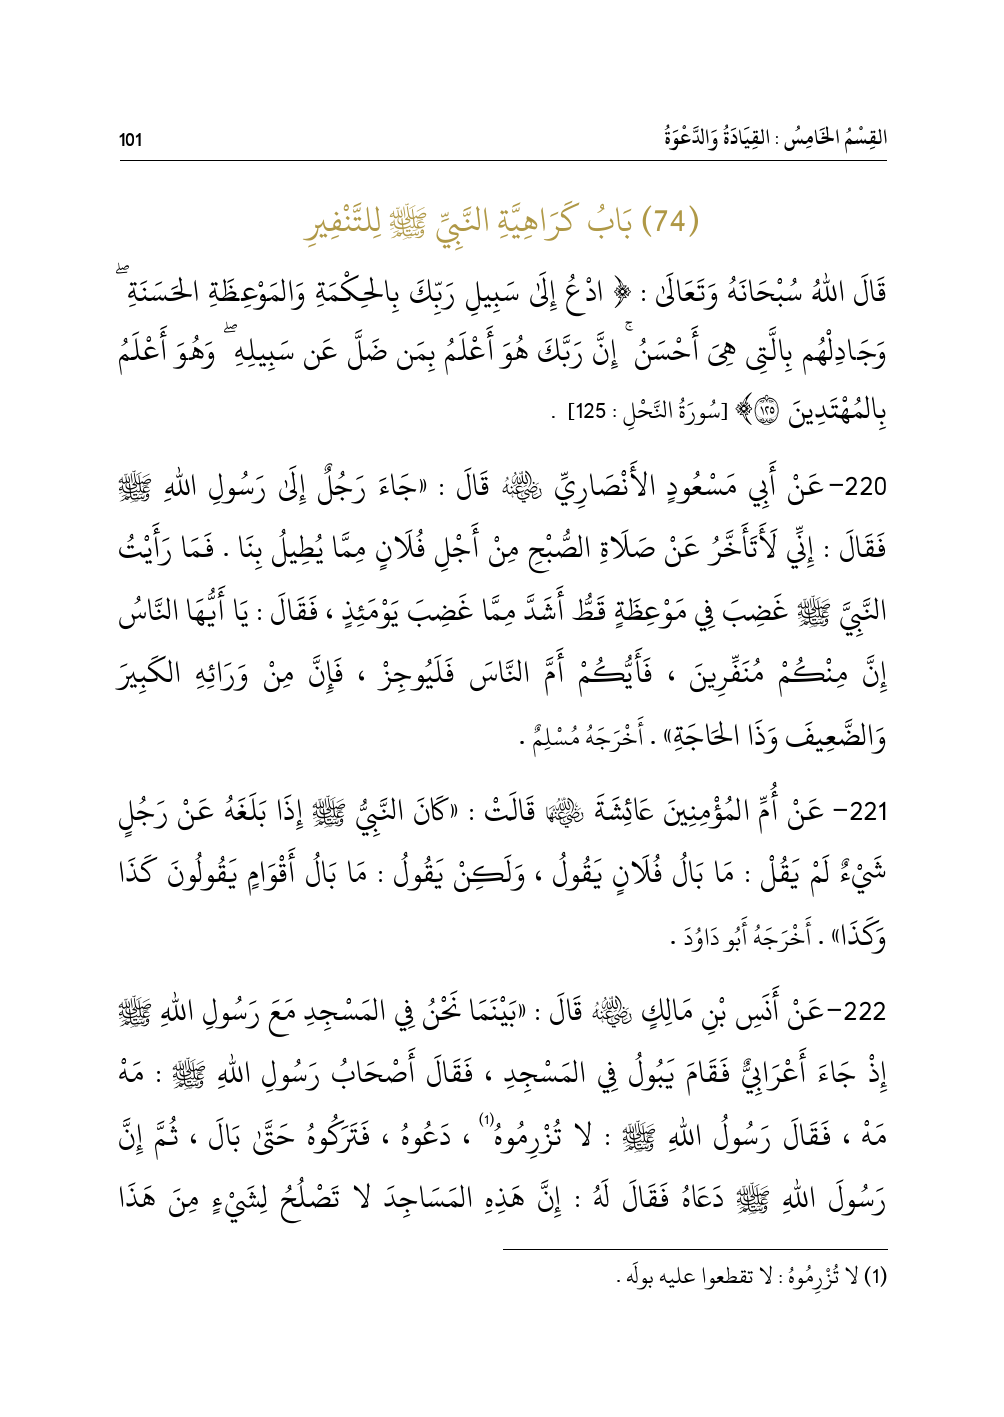 القِسْمُ الخَامِسُ : القِيَادَةُ وَالدَّعْوَةُ 101
(74) بَابُ كَرَاهِيَّةِ النَّبِيِّ ﷺ لِلتَّنْفِيرِ
قَالَ اللهُ سُبْحَانَهُ وَتَعَالَىٰ : ﴿ ادْعُ إِلَىٰ سَبِيلِ رَبِّكَ بِالحِكْمَةِ وَالمَوْعِظَةِ الحَسَنَةِ ۖ
وَجَادِلْهُم بِالَّتِي هِيَ أَحْسَنُ ۚ إِنَّ رَبَّكَ هُوَ أَعْلَمُ بِمَن ضَلَّ عَن سَبِيلِهِ ۖ وَهُوَ أَعْلَمُ
بِالمُهْتَدِينَ ١٢٥﴾ [سُورَةُ النَّحْلِ : 125] .
220- عَنْ أَبِي مَسْعُودٍ الأَنْصَارِيِّ رضي الله عنه قَالَ : «جَاءَ رَجُلٌ إِلَىٰ رَسُولِ اللهِ ﷺ
فَقَالَ : إِنِّي لَأَتَأَخَّرُ عَنْ صَلَاةِ الصُّبْحِ مِنْ أَجْلِ فُلَانٍ مِمَّا يُطِيلُ بِنَا . فَمَا رَأَيْتُ
النَّبِيَّ ﷺ غَضِبَ فِي مَوْعِظَةٍ قَطُّ أَشَدَّ مِمَّا غَضِبَ يَوْمَئِذٍ ، فَقَالَ : يَا أَيُّهَا النَّاسُ
إِنَّ مِنْكُمْ مُنَفِّرِينَ ، فَأَيُّكُمْ أَمَّ النَّاسَ فَلَيُوجِزْ ، فَإِنَّ مِنْ وَرَائِهِ الكَبِيرَ
وَالضَّعِيفَ وَذَا الحَاجَةِ» . أَخْرَجَهُ مُسْلِمٌ .
221- عَنْ أُمِّ المُؤْمِنِينَ عَائِشَةَ رضي الله عنها قَالَتْ : «كَانَ النَّبِيُّ ﷺ إِذَا بَلَغَهُ عَنْ رَجُلٍ
شَيْءٌ لَمْ يَقُلْ : مَا بَالُ فُلَانٍ يَقُولُ ، وَلَكِنْ يَقُولُ : مَا بَالُ أَقْوَامٍ يَقُولُونَ كَذَا
وَكَذَا» . أَخْرَجَهُ أَبُو دَاوُدَ .
222- عَنْ أَنَسِ بْنِ مَالِكٍ رضي الله عنه قَالَ : «بَيْنَمَا نَحْنُ فِي المَسْجِدِ مَعَ رَسُولِ اللهِ ﷺ
إِذْ جَاءَ أَعْرَابِيٌّ فَقَامَ يَبُولُ فِي المَسْجِدِ ، فَقَالَ أَصْحَابُ رَسُولِ اللهِ ﷺ : مَهْ
مَهْ ، فَقَالَ رَسُولُ اللهِ ﷺ : لا تُزْرِمُوهُ(1) ، دَعُوهُ ، فَتَرَكُوهُ حَتَّىٰ بَالَ ، ثُمَّ إِنَّ
رَسُولَ اللهِ ﷺ دَعَاهُ فَقَالَ لَهُ : إِنَّ هَذِهِ المَسَاجِدَ لا تَصْلُحُ لِشَيْءٍ مِنَ هَذَا
(1) لا تُزْرِمُوهُ : لا تقطعوا عليه بولَه .